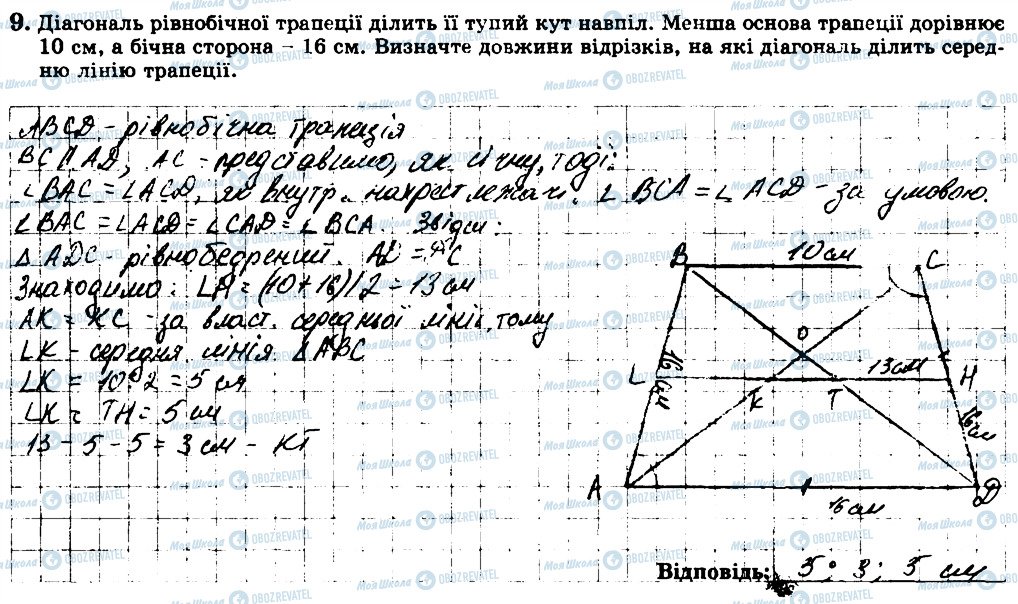 9. Діагональ рівнобічної трапеції ділить її тупий кут навпіл. Менша основа трапеції дорівнює
10 см, а бічна сторона – 16 см. Визначте довжини відрізків, на які діагональ ділить серед-
ню лінію трапеції.
ABCD - рівнобічна трапеція
BC || AD, AC - представимо, як січну, тоді:
∠BAC = ∠ACD, як внутр. нахрест лежачі. ∠BCA = ∠ACD - за умовою.
∠BAC = ∠ACD = ∠CAD = ∠BCA. Звідси:
△ADC - рівнобедрений.
Знаходимо: LH = (10+16)/2 = 13 см
AK = KC - за власт. середньої лінії, тому
LK - середня лінія △ABC
LK = 10:2 = 5 см
LK = TH = 5 см
13 - 5 - 5 = 3 см - KT
B 10 см C
O
16 см
L K T 13 см H
16 см
A 16 см D
Відповідь: 5; 3; 5 см
Моя Школа OBOZREVATEL